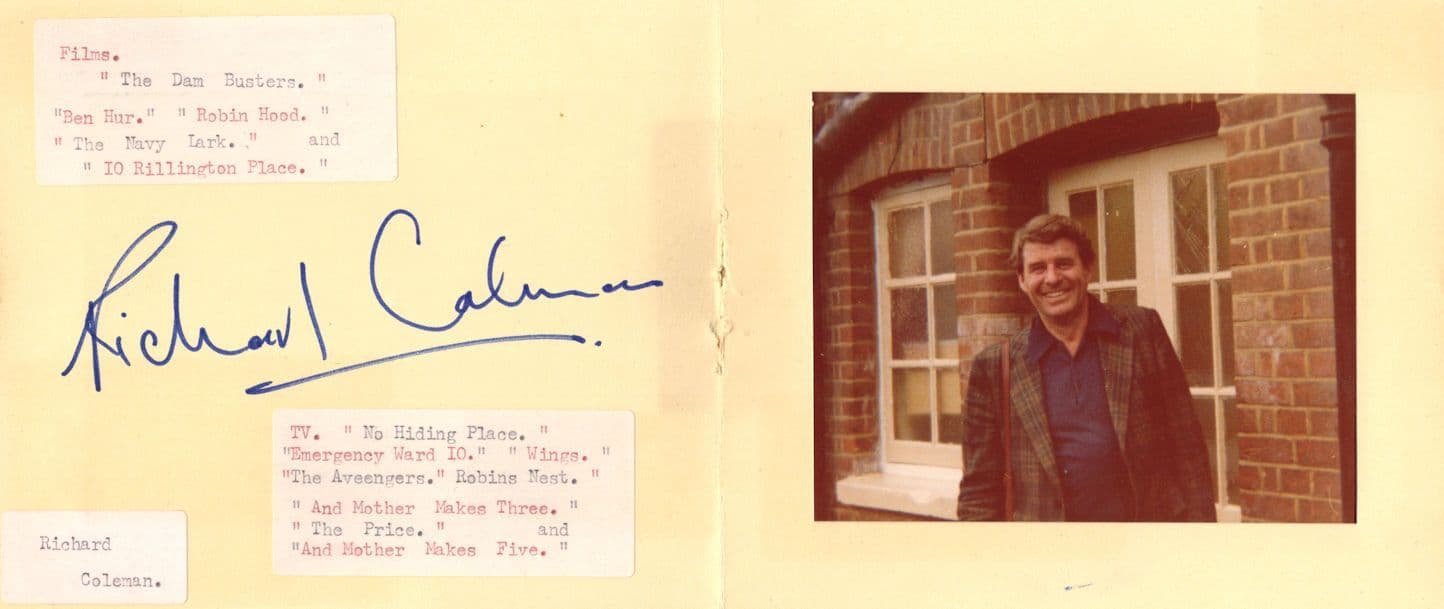 Films.
" The Dam Busters. "
"Ben Hur." " Robin Hood. "
" The Navy Lark." and
" IO Rillington Place. "
Richard Coleman.
TV. " No Hiding Place. "
"Emergency Ward IO." " Wings. "
"The Aveengers." Robins Nest. "
" And Mother Makes Three. "
" The Price. " and
"And Mother Makes Five. "
Richard
Coleman.